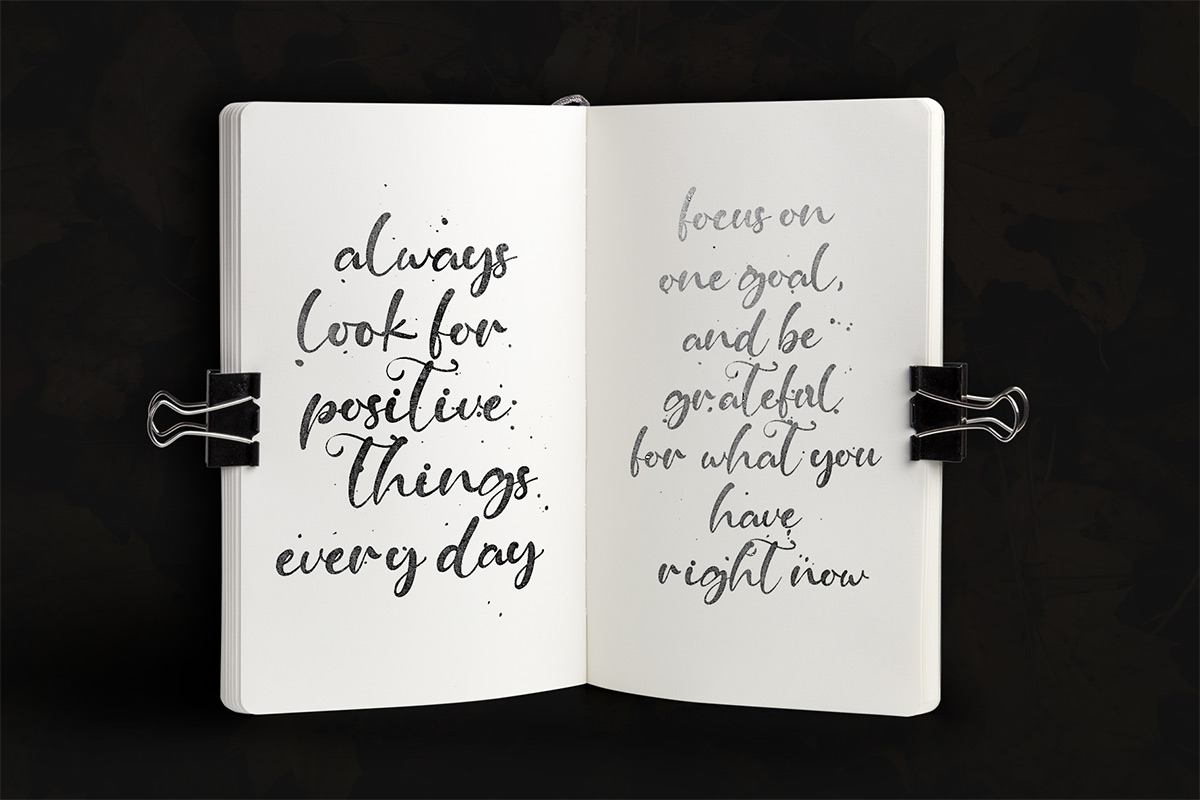 always
look for
positive
things
every day
focus on
one goal,
and be
grateful
for what you
have
right now